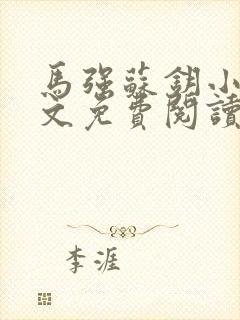 馬強蘇鈅小
文免費閱讀
李涯